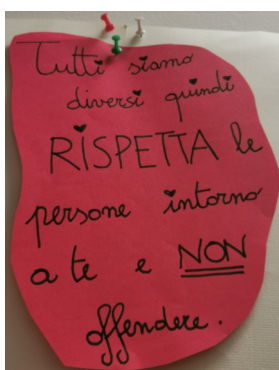 Tutti siamo
diversi quindi
RISPETTA le
persone intorno
a te e NON
offendere.